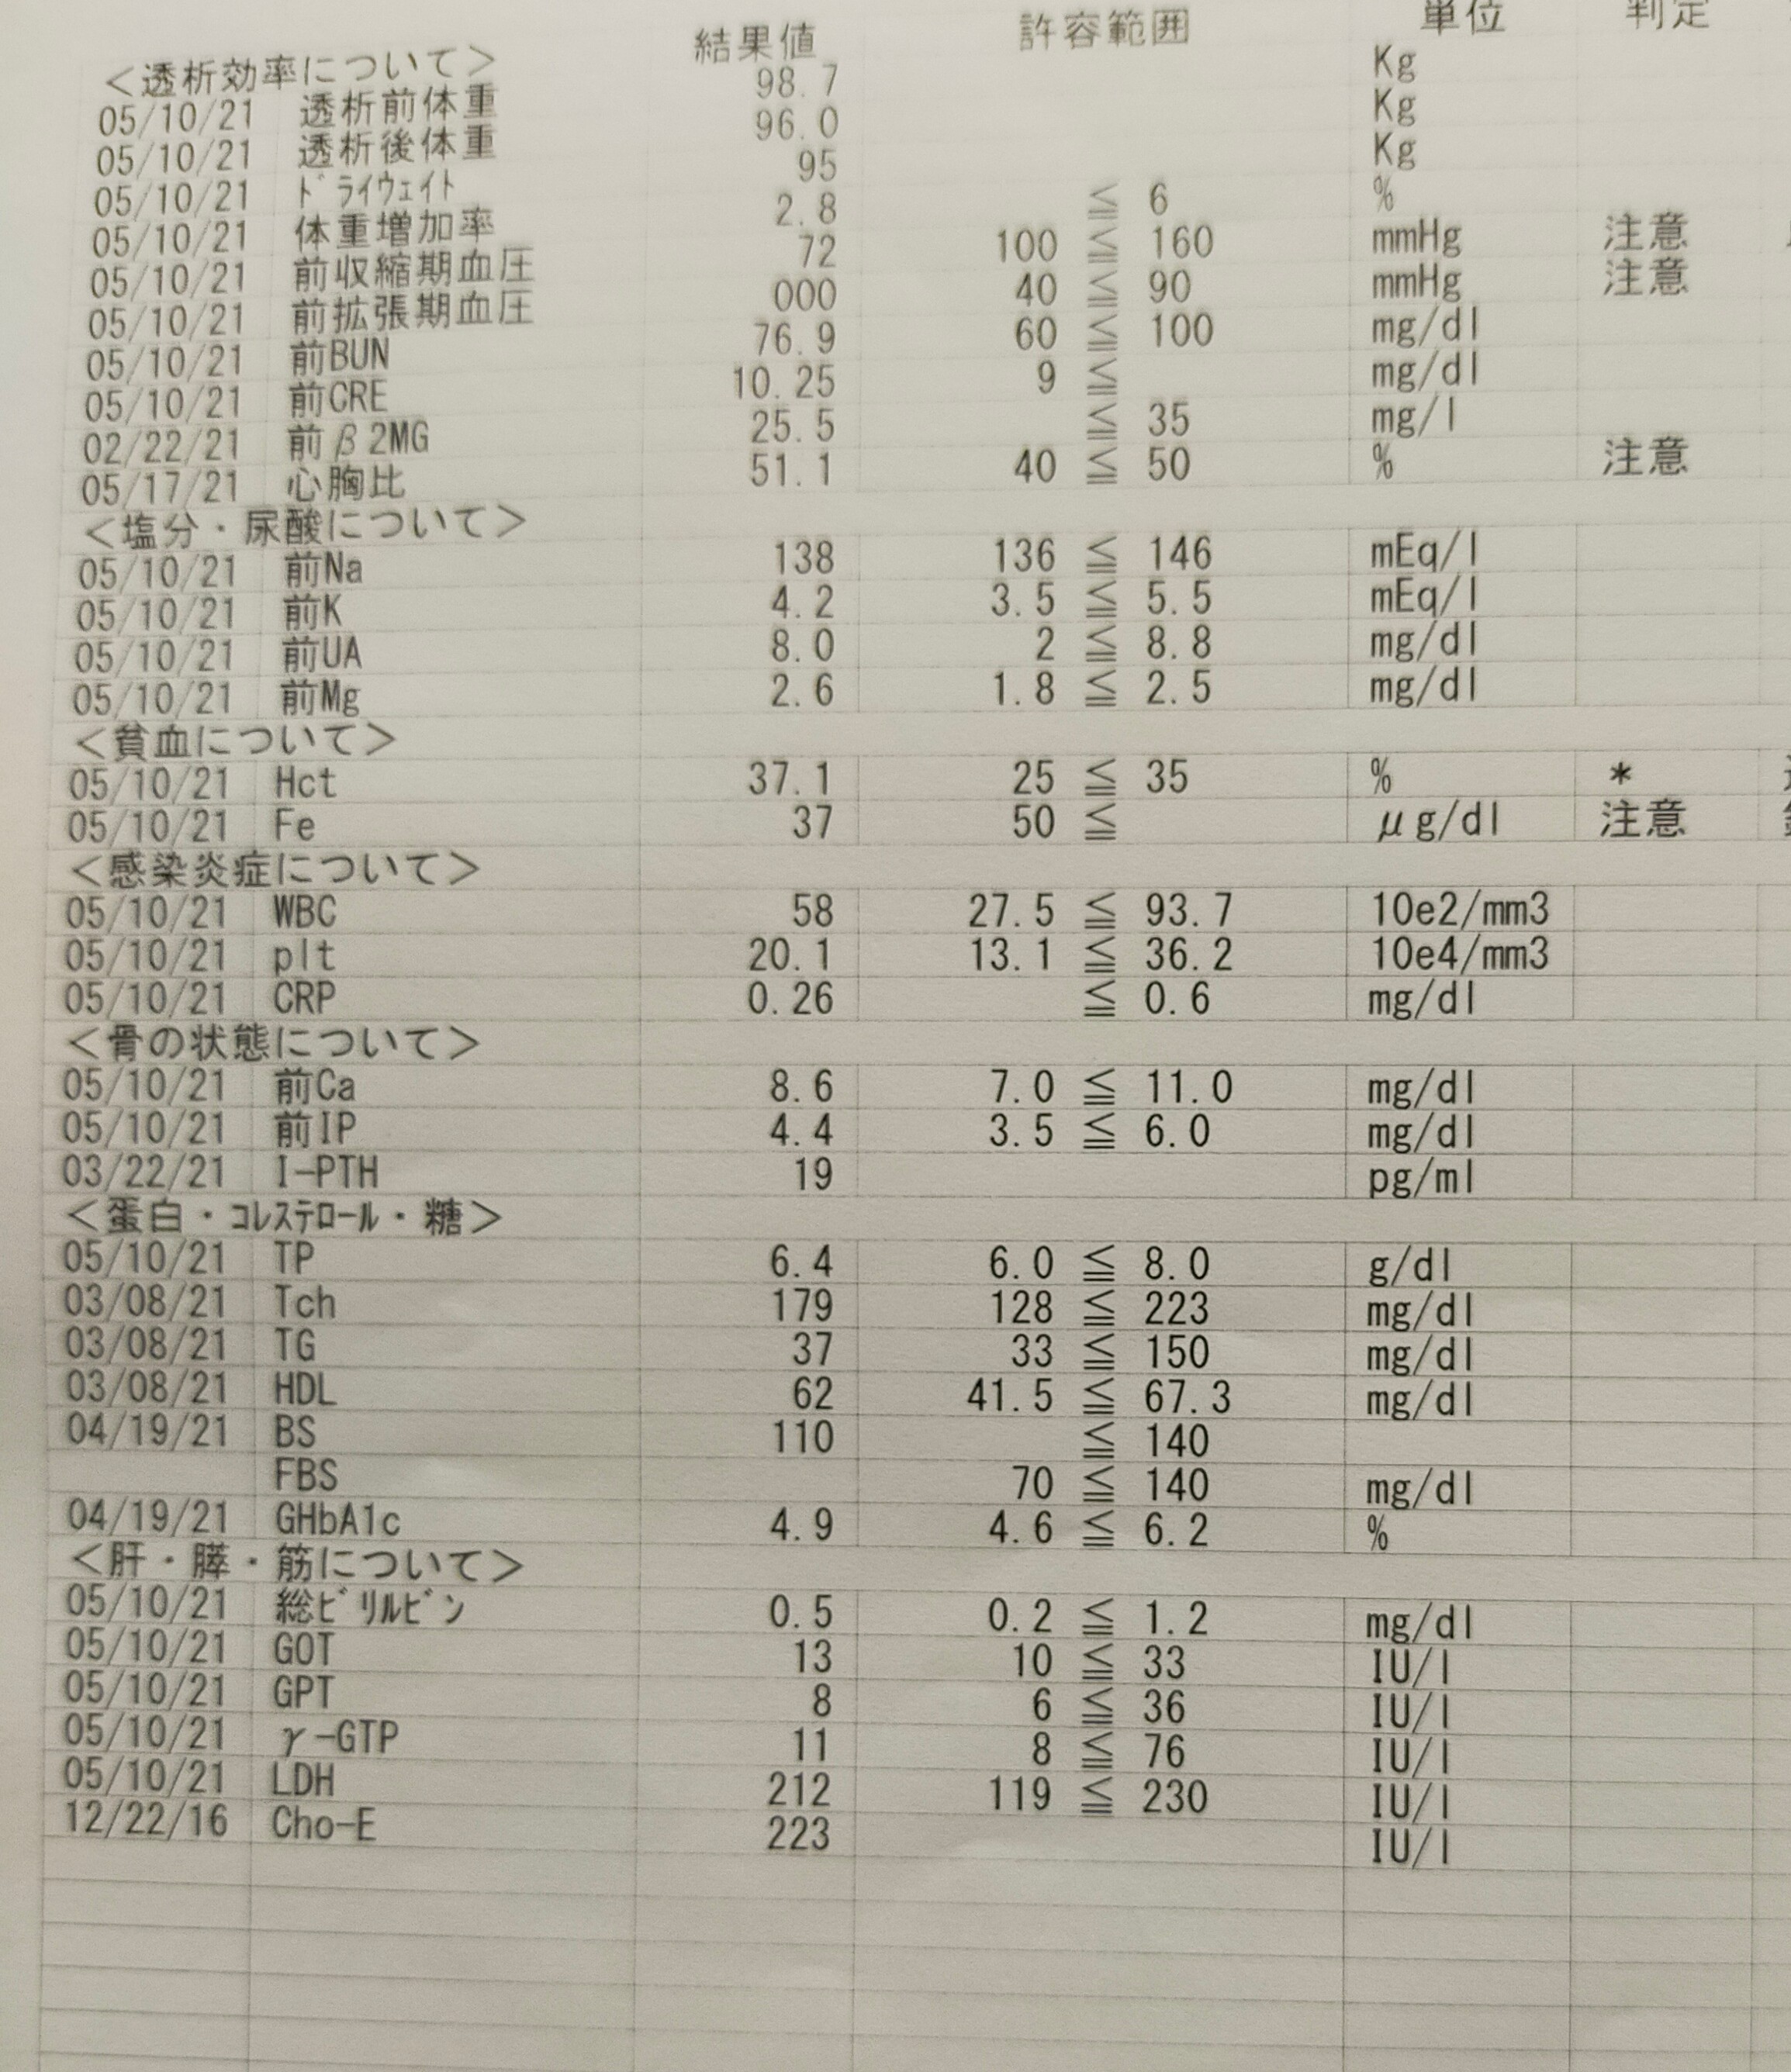 結果値 許容範囲 単位 判定
＜透析効率について＞
05/10/21 透析前体重 98.7 Kg
05/10/21 透析後体重 96.0 Kg
05/10/21 ﾄﾞﾗｲｳｪｲﾄ 95 Kg
05/10/21 体重増加率 2.8 ≦ 6 %
05/10/21 前収縮期血圧 72 100 ≦ 160 mmHg 注意
05/10/21 前拡張期血圧 000 40 ≦ 90 mmHg 注意
05/10/21 前BUN 76.9 60 ≦ 100 mg/dl
05/10/21 前CRE 10.25 9 ≦ mg/dl
02/22/21 前β2MG 25.5 ≦ 35 mg/l
05/17/21 心胸比 51.1 40 ≦ 50 % 注意
＜塩分・尿酸について＞
05/10/21 前Na 138 136 ≦ 146 mEq/l
05/10/21 前K 4.2 3.5 ≦ 5.5 mEq/l
05/10/21 前UA 8.0 2 ≦ 8.8 mg/dl
05/10/21 前Mg 2.6 1.8 ≦ 2.5 mg/dl
＜貧血について＞
05/10/21 Hct 37.1 25 ≦ 35 % *
05/10/21 Fe 37 50 ≦ μg/dl 注意
＜感染炎症について＞
05/10/21 WBC 58 27.5 ≦ 93.7 10e2/mm3
05/10/21 plt 20.1 13.1 ≦ 36.2 10e4/mm3
05/10/21 CRP 0.26 ≦ 0.6 mg/dl
＜骨の状態について＞
05/10/21 前Ca 8.6 7.0 ≦ 11.0 mg/dl
05/10/21 前IP 4.4 3.5 ≦ 6.0 mg/dl
03/22/21 I-PTH 19 pg/ml
＜蛋白・ｺﾚｽﾃﾛｰﾙ・糖＞
05/10/21 TP 6.4 6.0 ≦ 8.0 g/dl
03/08/21 Tch 179 128 ≦ 223 mg/dl
03/08/21 TG 37 33 ≦ 150 mg/dl
03/08/21 HDL 62 41.5 ≦ 67.3 mg/dl
04/19/21 BS 110 ≦ 140
FBS 70 ≦ 140 mg/dl
04/19/21 GHbA1c 4.9 4.6 ≦ 6.2 %
＜肝・膵・筋について＞
05/10/21 総ﾋﾞﾘﾙﾋﾞﾝ 0.5 0.2 ≦ 1.2 mg/dl
05/10/21 GOT 13 10 ≦ 33 IU/l
05/10/21 GPT 8 6 ≦ 36 IU/l
05/10/21 γ-GTP 11 8 ≦ 76 IU/l
05/10/21 LDH 212 119 ≦ 230 IU/l
12/22/16 Cho-E 223 IU/l